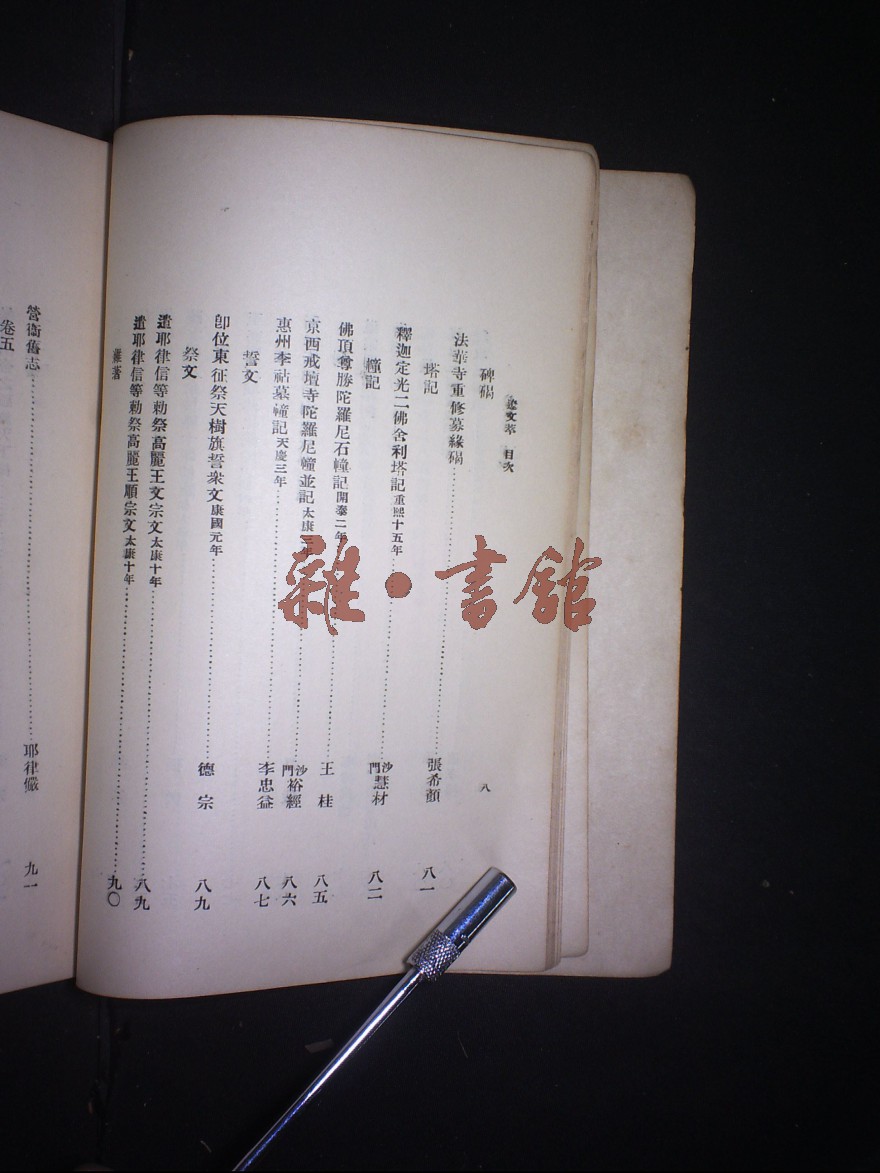 遼文萃 目次
八
碑碣
法華寺重修募緣碣……張希顏 八一
塔記
釋迦定光二佛舍利塔記重熙十五年……沙門慧材 八二
幢記
佛頂尊勝陀羅尼石幢記開泰二年……王桂 八五
京西戒壇寺陀羅尼幢並記太康元年……沙門裕經 八六
惠州李祜墓幢記天慶三年……李忠益 八七
誓文
即位東征祭天樹旗誓衆文康國元年……德宗 八九
祭文
遣耶律信等勅祭高麗王文宗文太康十年……八九
遣耶律信等勅祭高麗王順宗文太康十年……九〇
雜著
營衞舊志……耶律儼 九一
卷五
雜·書館